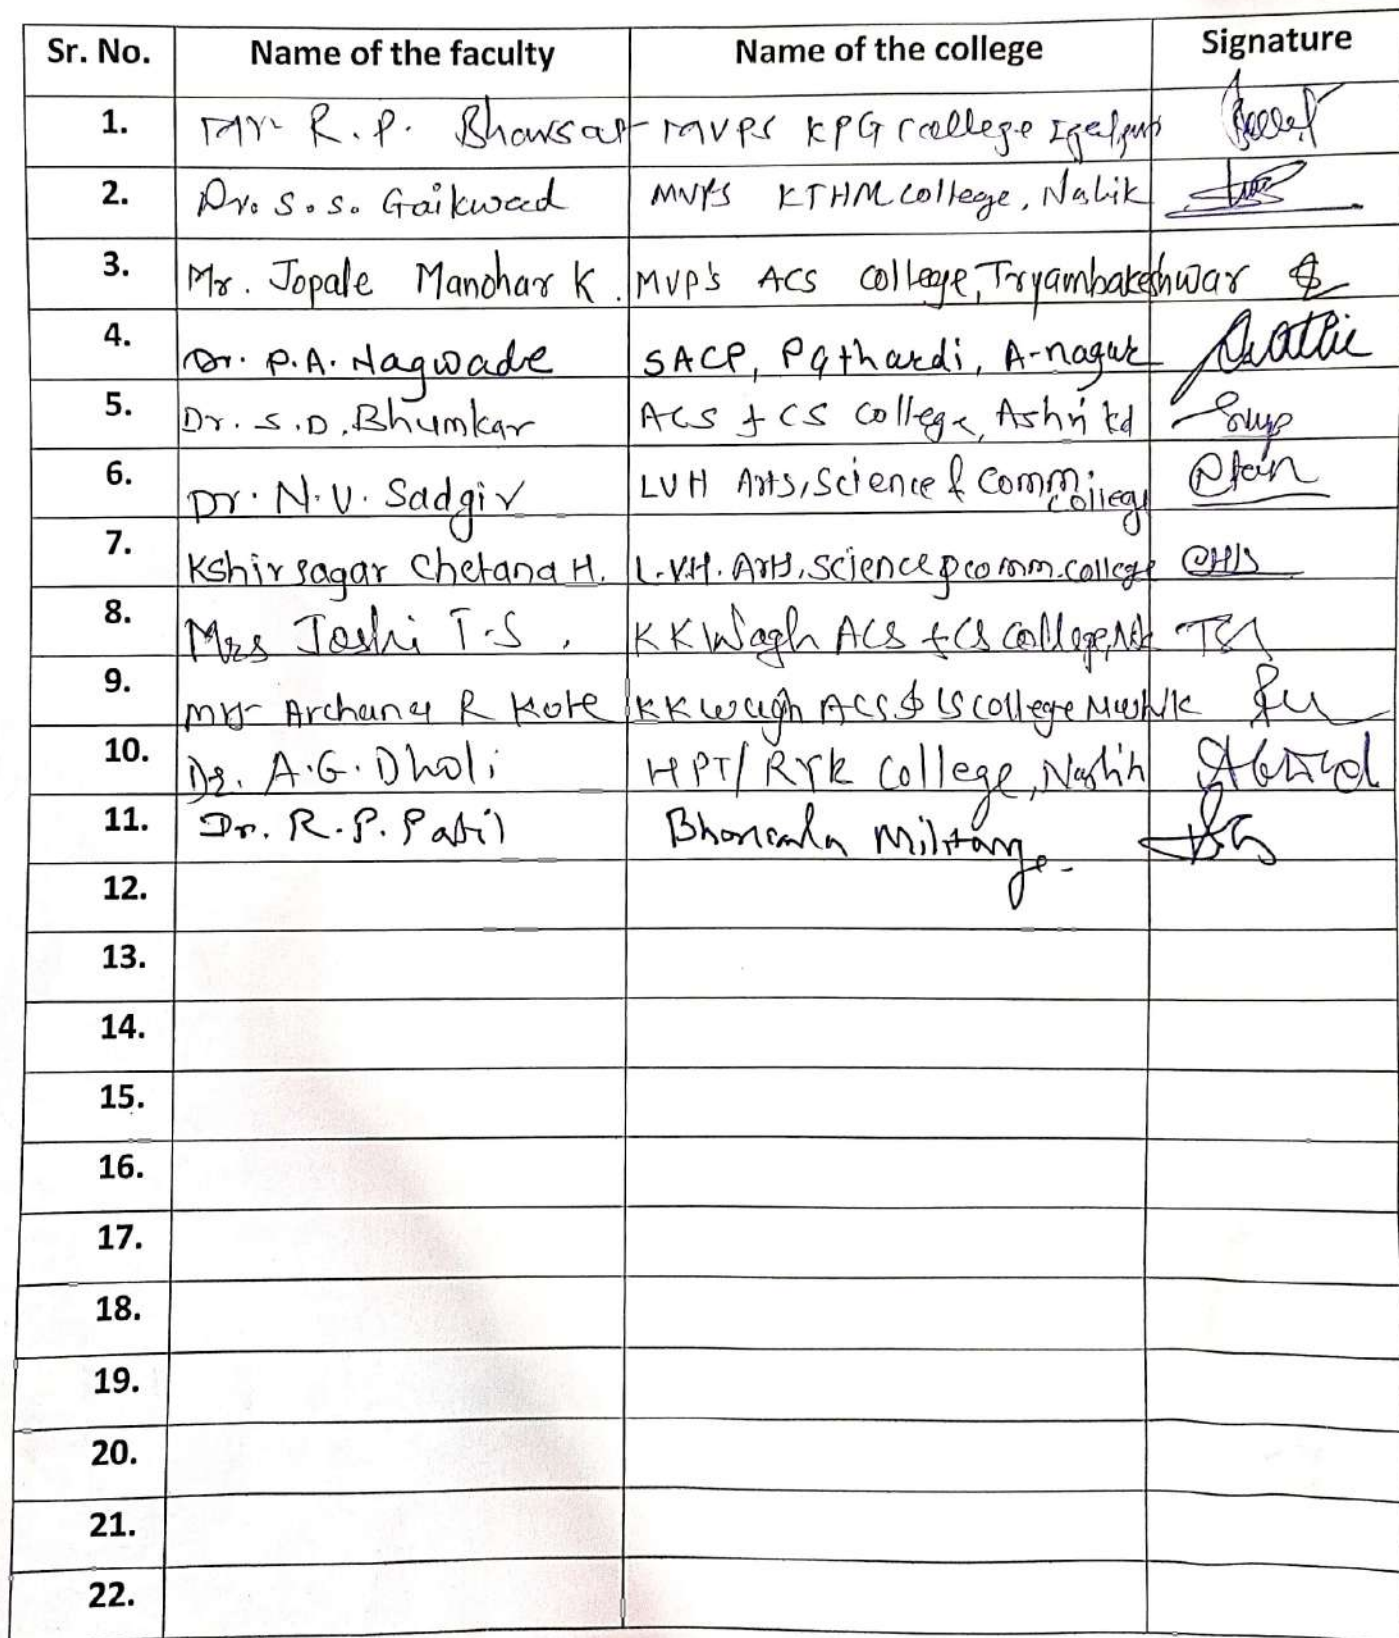 Sr. No. Name of the faculty Name of the college Signature
1. Mr. R.P. Bhavsar MVPS KPG college Igatpuri
2. Dr. S.S. Gaikwad MVPS KTHM College, Nashik
3. Mr. Jopale Manohar K. MVP's ACS College, Tryambakeshwar
4. Dr. P.A. Nagwade SACP, Pathardi, A-nagar
5. Dr. S.D. Bhumkar ACS & CS College, Ashvi kd
6. Dr. N.V. Sadgir LVH Arts, Science & Comm. College
7. Kshirsagar Chetana H. L.V.H. Arts, Science & comm. college
8. Mrs Joshi T.S. KK Wagh ACS & CS College, Nsk
9. Mrs Archana R Kote KK Wagh ACS & CS college Nashik
10. Dr. A.G. Dholi HPT/RYK College, Nashik
11. Dr. R.P. Patil Bhonsala Military
12.
13.
14.
15.
16.
17.
18.
19.
20.
21.
22.